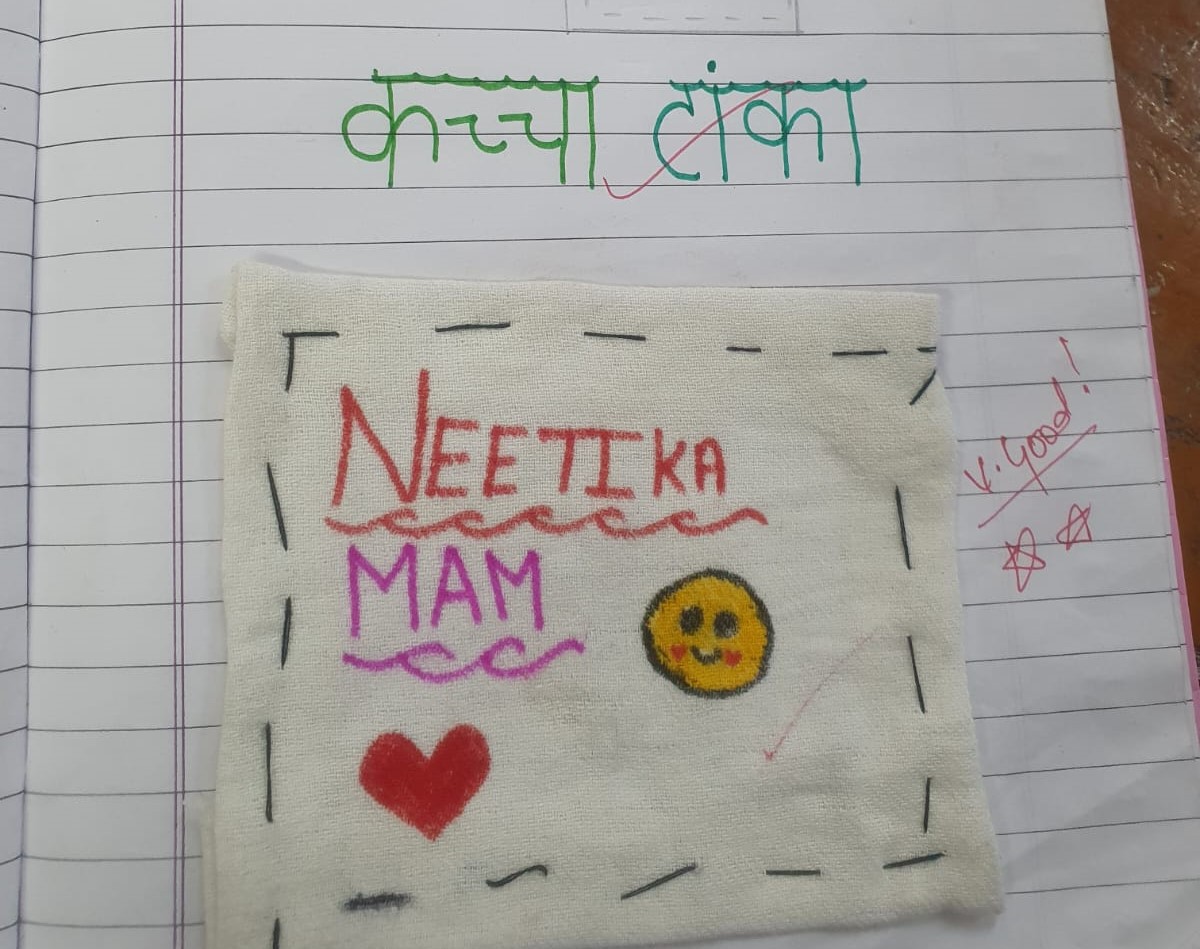 कच्चा टांका
NEETIKA
MAM
V. Good!